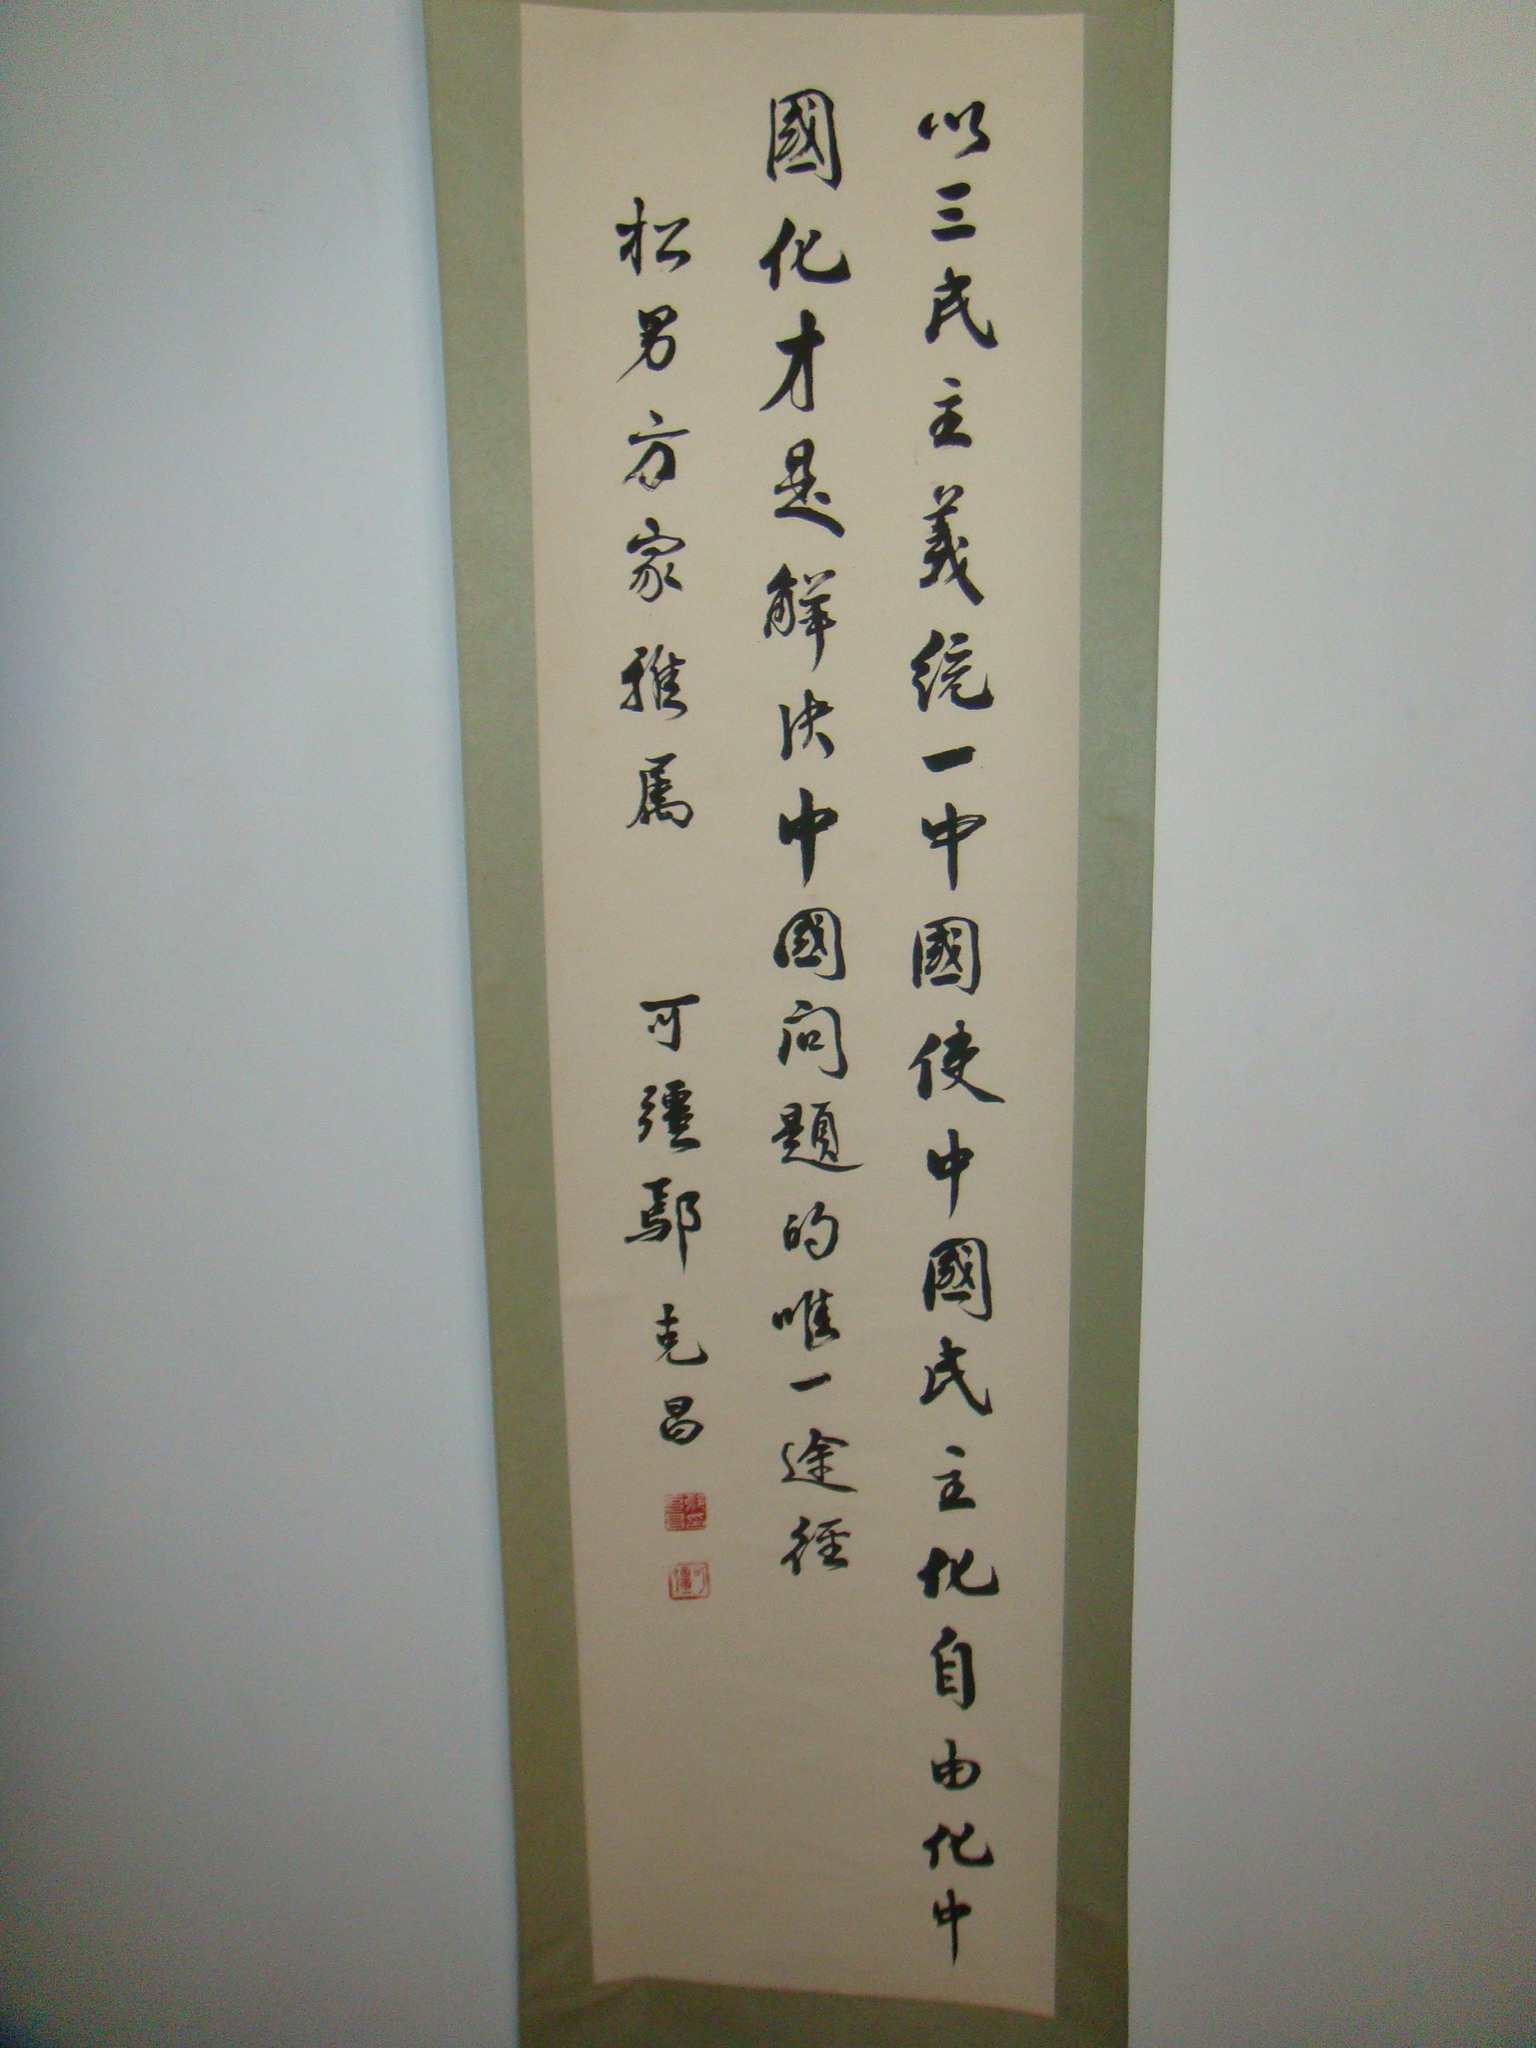 以三民主義統一中國使中國民主化自由化中
國化才是解決中國问題的唯一途徑
松男方家雅属 可彊鄢克昌